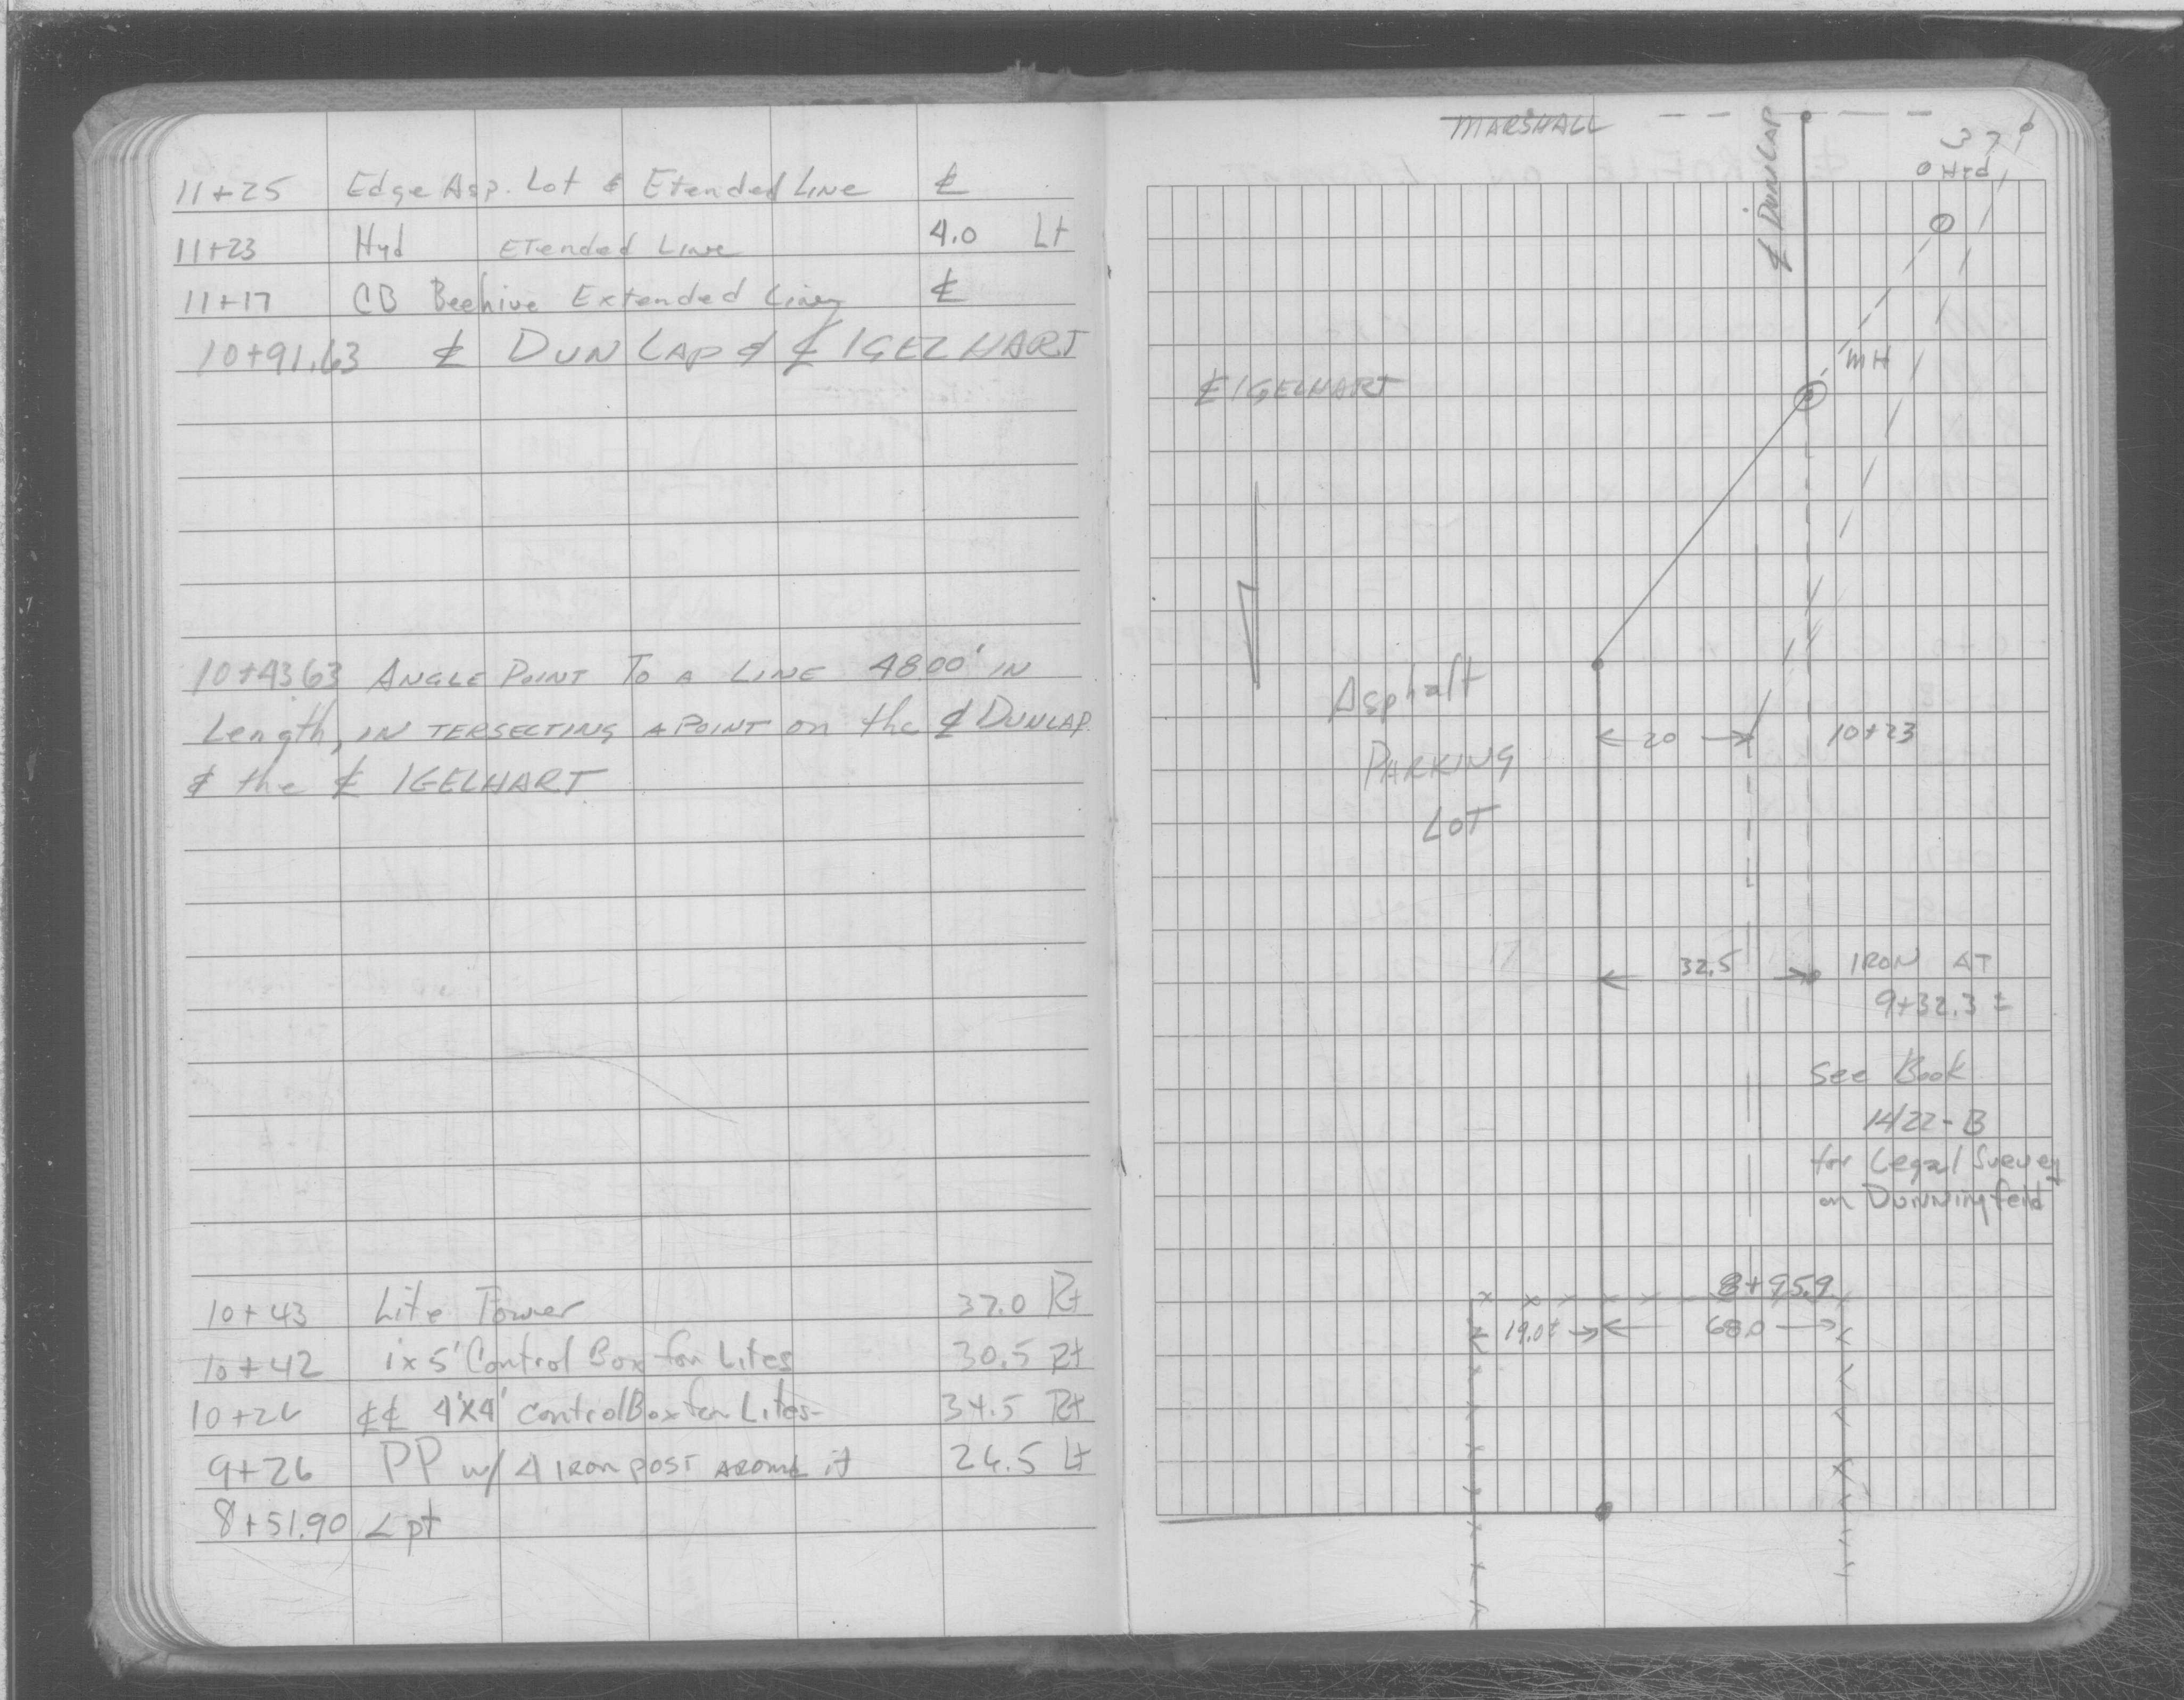 11+25 Edge Asp. Lot & Etended Line ℄
11+23 Hyd Etended Line 4.0 Lt
11+17 CB Beehive Extended Line ℄
10+91.63 ℄ DUNLAP & ℄ IGELHART
10+4363 ANGLE POINT TO A LINE 4800' IN
Length, INTERSECTING A POINT on the ℄ DUNLAP
& the ℄ IGELHART
10+43 Lite Tower 37.0 Rt
10+42 1x5' Control Box for Lites 30.5 Rt
10+26 ℄℄ 4'x4' Control Box for Lites 34.5 Rt
9+26 PP w/ 4 IRON POST AROUND it 26.5 Lt
8+51.90 ∠ pt
MARSHALL
℄ DUNLAP
37
Hyd
MH
℄ IGELHART
Asphalt
PARKING
LOT
20
10+23
32.5
IRON AT
9+32.3 ±
See Book
1422-B
for Legal Survey
on Dunningfeild
8+95.9
19.0±
68.0